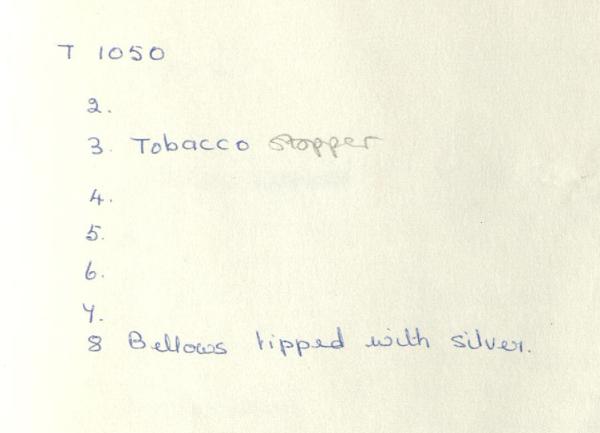 T 1050
2.
3. Tobacco stopper
4.
5.
6.
7.
8 Bellows tipped with silver.